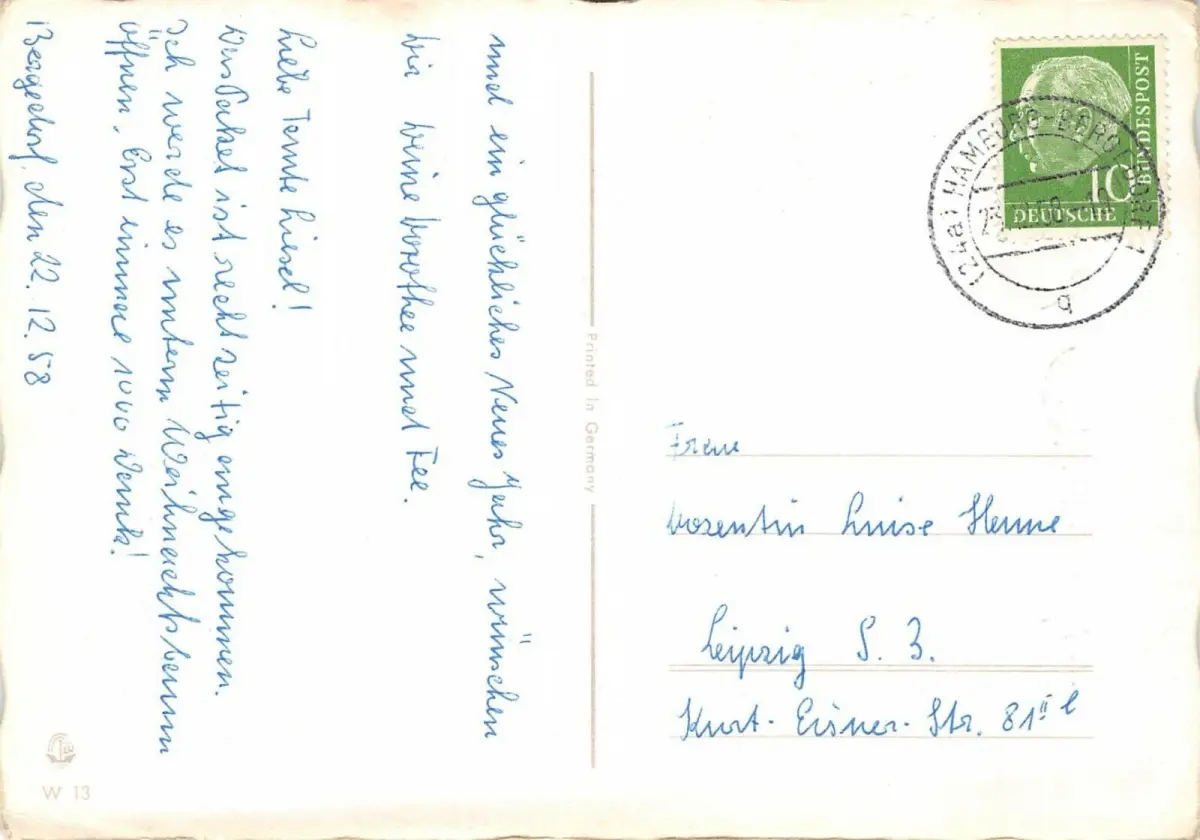 und ein glückliches Neues Jahr, wünschen
Dir Deine Dorothee und Fee.
Liebe Tante Liesel!
Das Paket ist rechtzeitig angekommen.
Ich werde es unterm Weihnachtsbaum
öffnen. Erst immer 1000 Dank!
Bergedorf, den 22.12.58
W 13
Printed in Germany
DEUTSCHE BUNDESPOST
10
(24a) HAMBURG-BERGEDORF 1
b
Frau
Dozentin Luise Henne
Leipzig S. 3.
Kurt-Eisner-Str. 81 II l